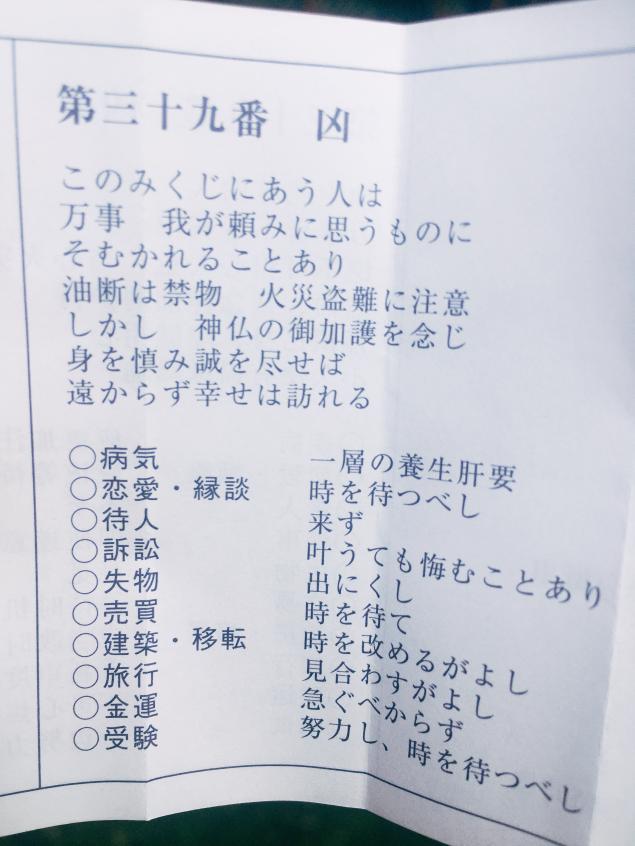 第三十九番　凶
このみくじにあう人は
万事　我が頼みに思うものに
そむかれることあり
油断は禁物　火災盗難に注意
しかし　神仏の御加護を念じ
身を慎み誠を尽せば
遠からず幸せは訪れる
○病気　一層の養生肝要
○恋愛・縁談　時を待つべし
○待人　来ず
○訴訟　叶うても悔むことあり
○失物　出にくし
○売買　時を待て
○建築・移転　時を改めるがよし
○旅行　見合わすがよし
○金運　急ぐべからず
○受験　努力し、時を待つべし